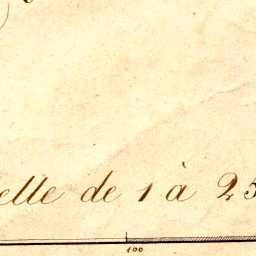 elle de 1 à 25
100